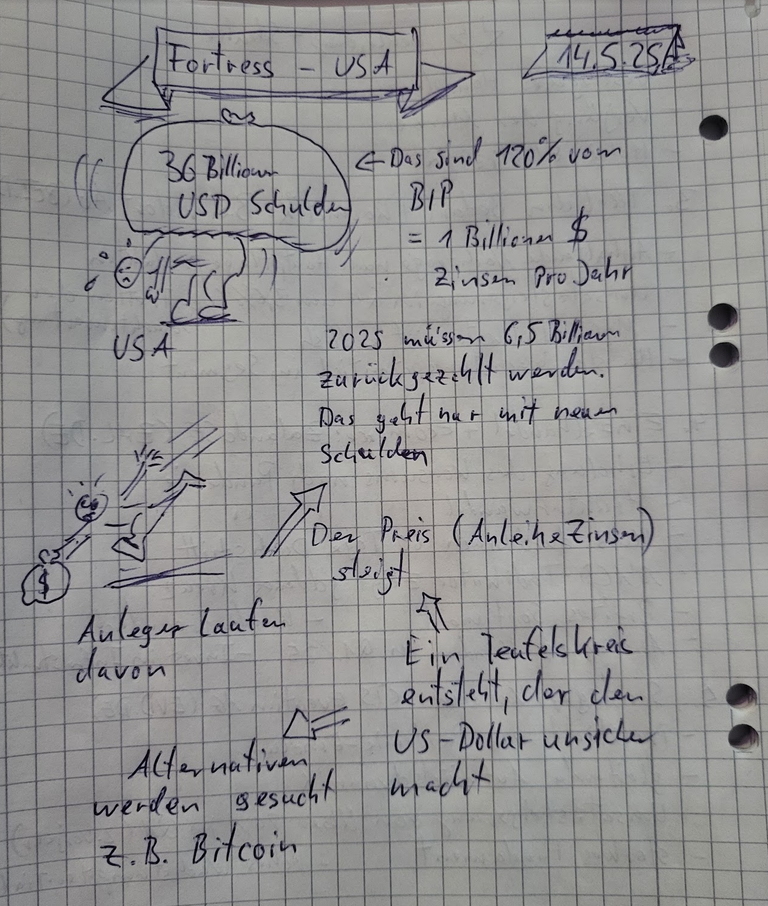 Fortress - USA
14.5.25
36 Billionen
USD Schulden
← Das sind 120% vom
BIP
= 1 Billionen $
Zinsen Pro Jahr
USA
2025 müssen 6,5 Billionen
zurückgezahlt werden.
Das geht nur mit neuen
Schulden
$
Der Preis (AnleiheZinsen)
steigt
Anleger Laufen
davon
Ein Teufelskreis
entsteht, der den
US-Dollar unsicher
macht
Alternativen
werden gesucht
z.B. Bitcoin